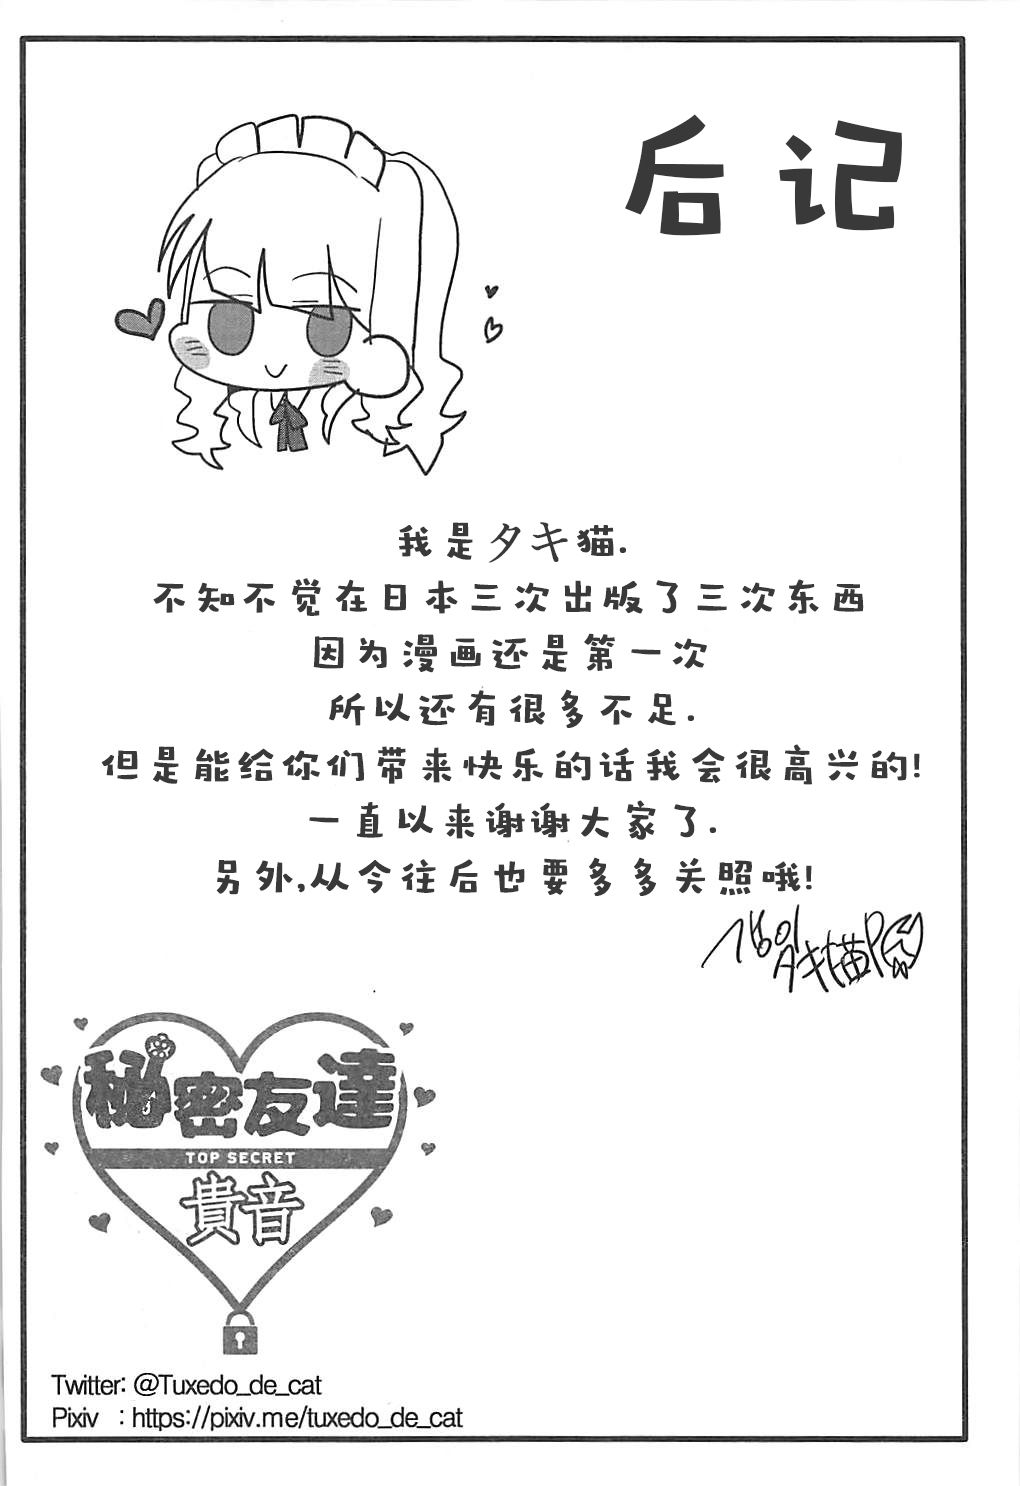 后记
我是タキ猫.
不知不觉在日本三次出版了三次东西
因为漫画还是第一次
所以还有很多不足.
但是能给你们带来快乐的话我会很高兴的!
一直以来谢谢大家了.
另外,从今往后也要多多关照哦!
タキ猫P
秘密友達
TOP SECRET
貴音
Twitter: @Tuxedo_de_cat
Pixiv : https://pixiv.me/tuxedo_de_cat